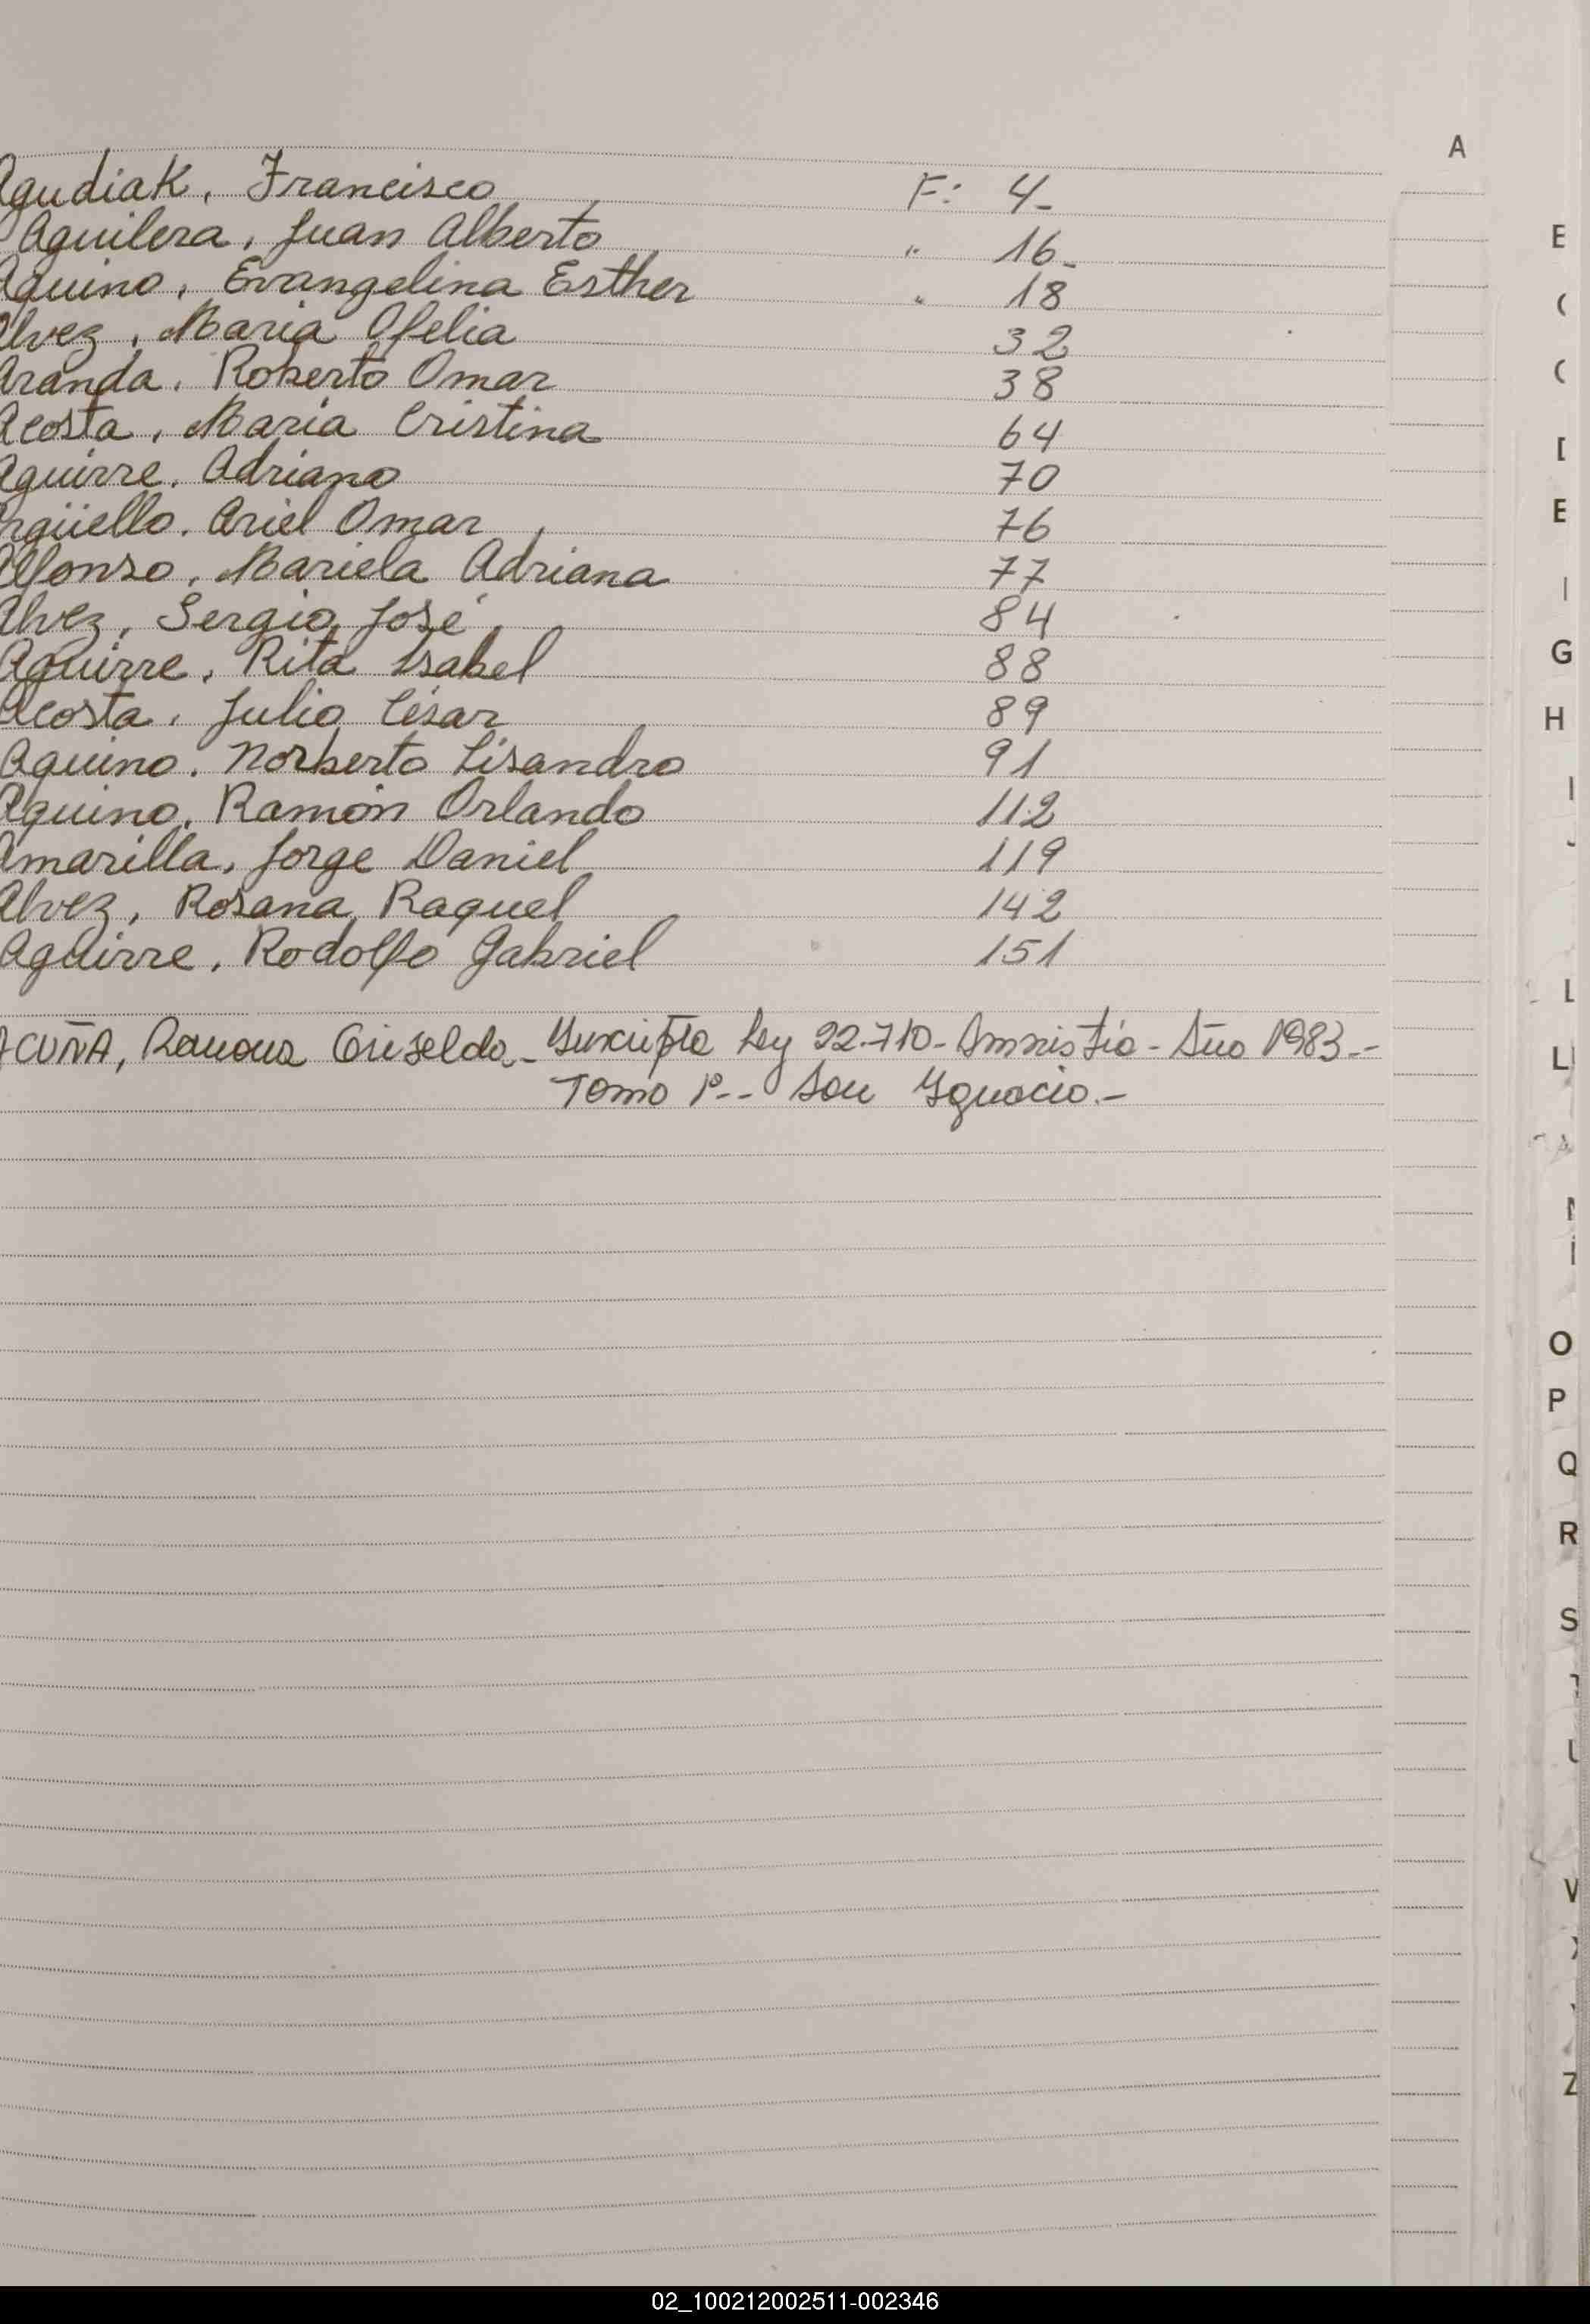 A
Agudiak, Francisco F: 4-
Aguilera, Juan Alberto " 16-
Aquino, Evangelina Esther " 18
Alvez, Maria Ofelia 32
Aranda, Roberto Omar 38
Acosta, Maria Cristina 64
Aguirre, Adriano 70
Argüello, Ariel Omar 76
Alfonso, Mariela Adriana 77
Alvez, Sergio José 84
Aguirre, Rita Isabel 88
Acosta, Julio César 89
Aquino, Norberto Lisandro 91
Aquino, Ramón Orlando 112
Amarilla, Jorge Daniel 119
Alvez, Rosana Raquel 142
Aguirre, Rodolfo Gabriel 151
ACUÑA, Ramona Griselda.- Inscripta Ley 22.710- Amnistía - Año 1983.--
Tomo 1º-- San Ignacio.-
E
G
H
L
O
P
Q
R
S
Z
02_100212002511-002346